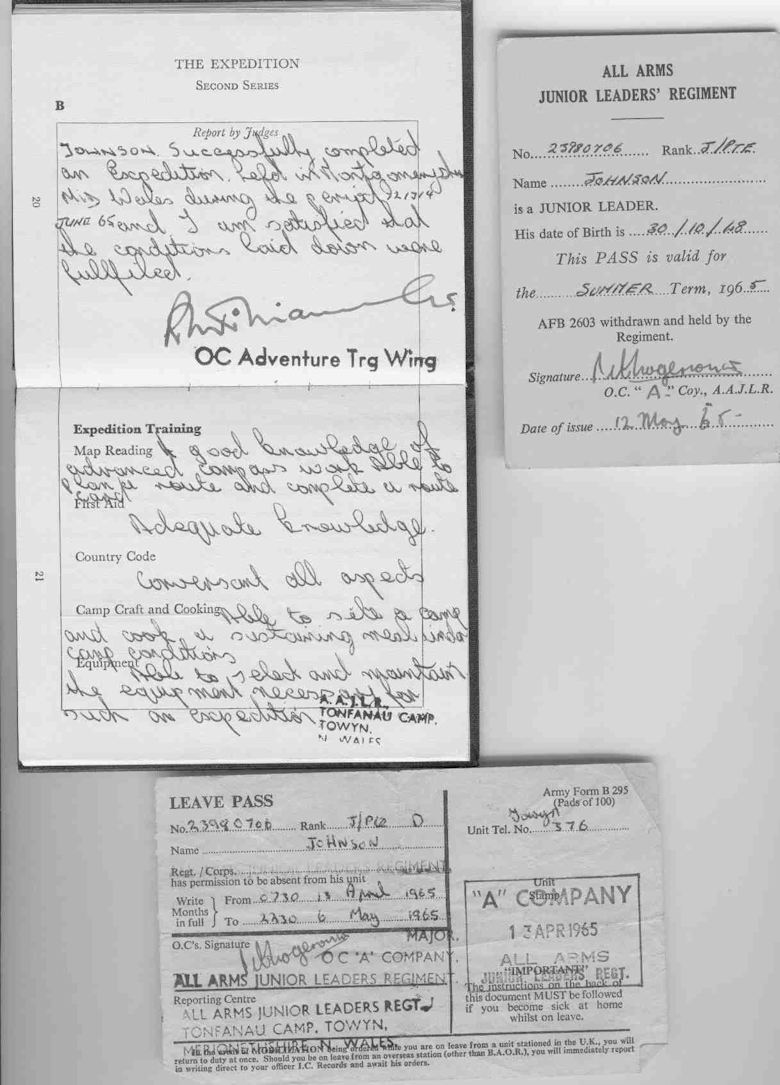 THE EXPEDITION
SECOND SERIES
B
Report by Judges
JOHNSON. Successfully completed
an Expedition held in Montgomeryshire
Mid Wales during the period 2/3/4
JUNE 65 and I am satisfied that
the conditions laid down were
fullfilled.
OC Adventure Trg Wing
20
Expedition Training
Map Reading A good knowledge of
advanced compass work Able to
plan a route and complete a route
card
First Aid
Adequate knowledge.
Country Code
Conversant all aspects
Camp Craft and Cooking Able to site a camp
and cook a sustaining meal under
camp conditions
Equipment Able to select and maintain
the equipment necessary for
such an expedition
21
A.A.J.L.R.
TONFANAU CAMP.
TOWYN.
N WALES
ALL ARMS
JUNIOR LEADERS' REGIMENT
No. 23980706 Rank J/PTE
Name JOHNSON
is a JUNIOR LEADER.
His date of Birth is 30/10/48
This PASS is valid for
the SUMMER Term, 1965
AFB 2603 withdrawn and held by the
Regiment.
Signature
O.C. "A" Coy., A.A.J.L.R.
Date of issue 12 May 65
LEAVE PASS
No. 23980706 Rank J/Pte D
Name JOHNSON
Regt. / Corps. JUNIOR LEADERS REGIMENT
has permission to be absent from his unit
Write Months in full
From 0730 13 April 1965
To 2230 6 May 1965
O.C's. Signature MAJOR.
OC 'A' COMPANY.
ALL ARMS JUNIOR LEADERS REGIMENT.
Reporting Centre
ALL ARMS JUNIOR LEADERS REGT
TONFANAU CAMP, TOWYN,
MERIONETHSHIRE, N. WALES.
Army Form B 295
(Pads of 100)
Towyn
Unit Tel. No. 376
Unit
Stamp
"A" COMPANY
13 APR 1965
ALL ARMS
JUNIOR LEADERS REGT.
"IMPORTANT"
The instructions on the back of
this document MUST be followed
if you become sick at home
whilst on leave.
In the event of MOBILIZATION being ordered while you are on leave from a unit stationed in the U.K., you will
return to duty at once. Should you be on leave from an overseas station (other than B.A.O.R.), you will immediately report
in writing direct to your officer I.C. Records and await his orders.